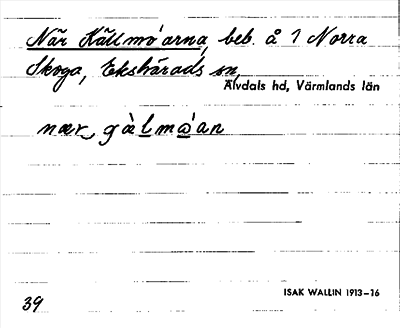 När Källmóarna, beb. å 1 Norra
Skoga, Ekshärads sn,
Älvdals hd, Värmlands län
nær gàlmòan
ISAK WALLIN 1913–16
39